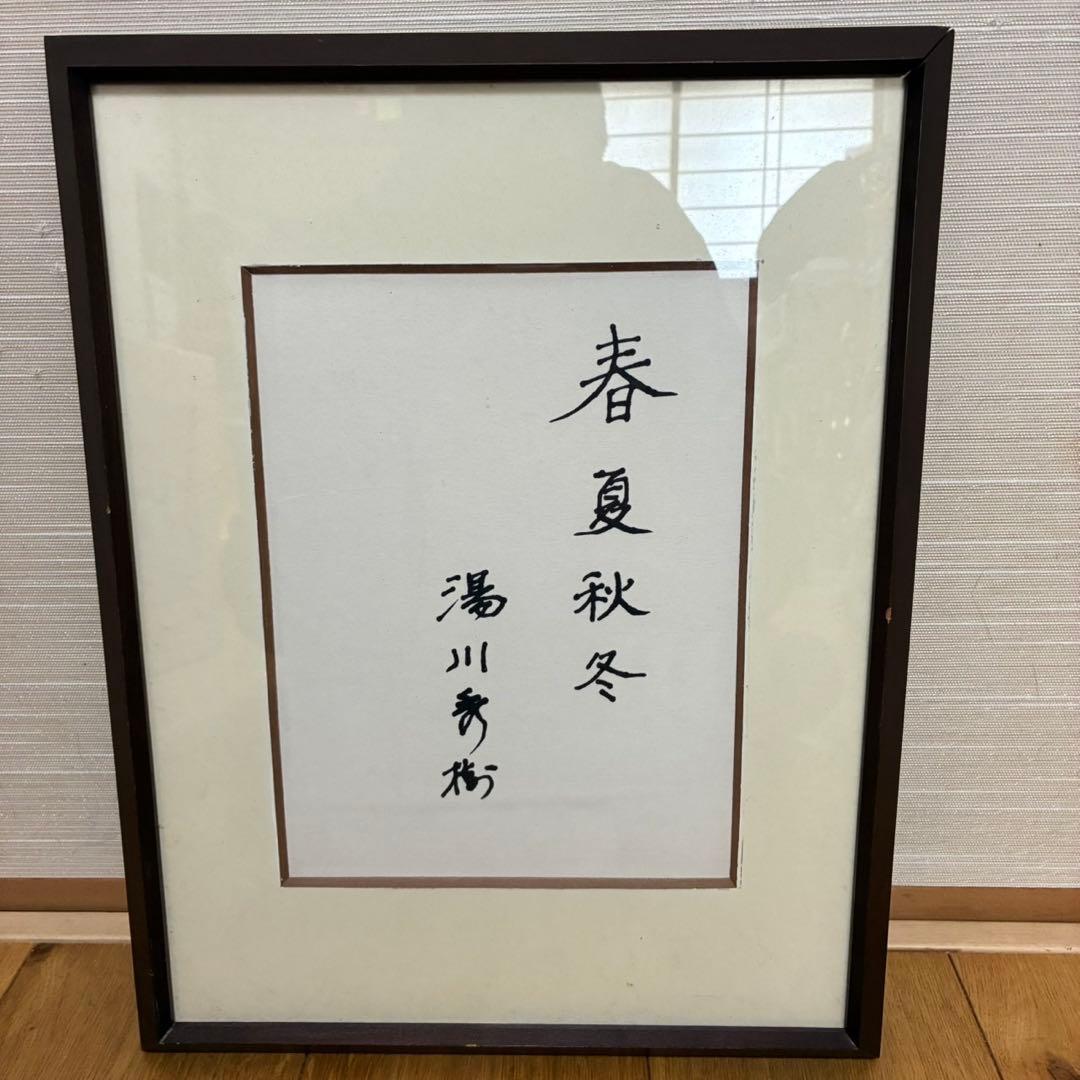 春夏秋冬
湯川秀樹